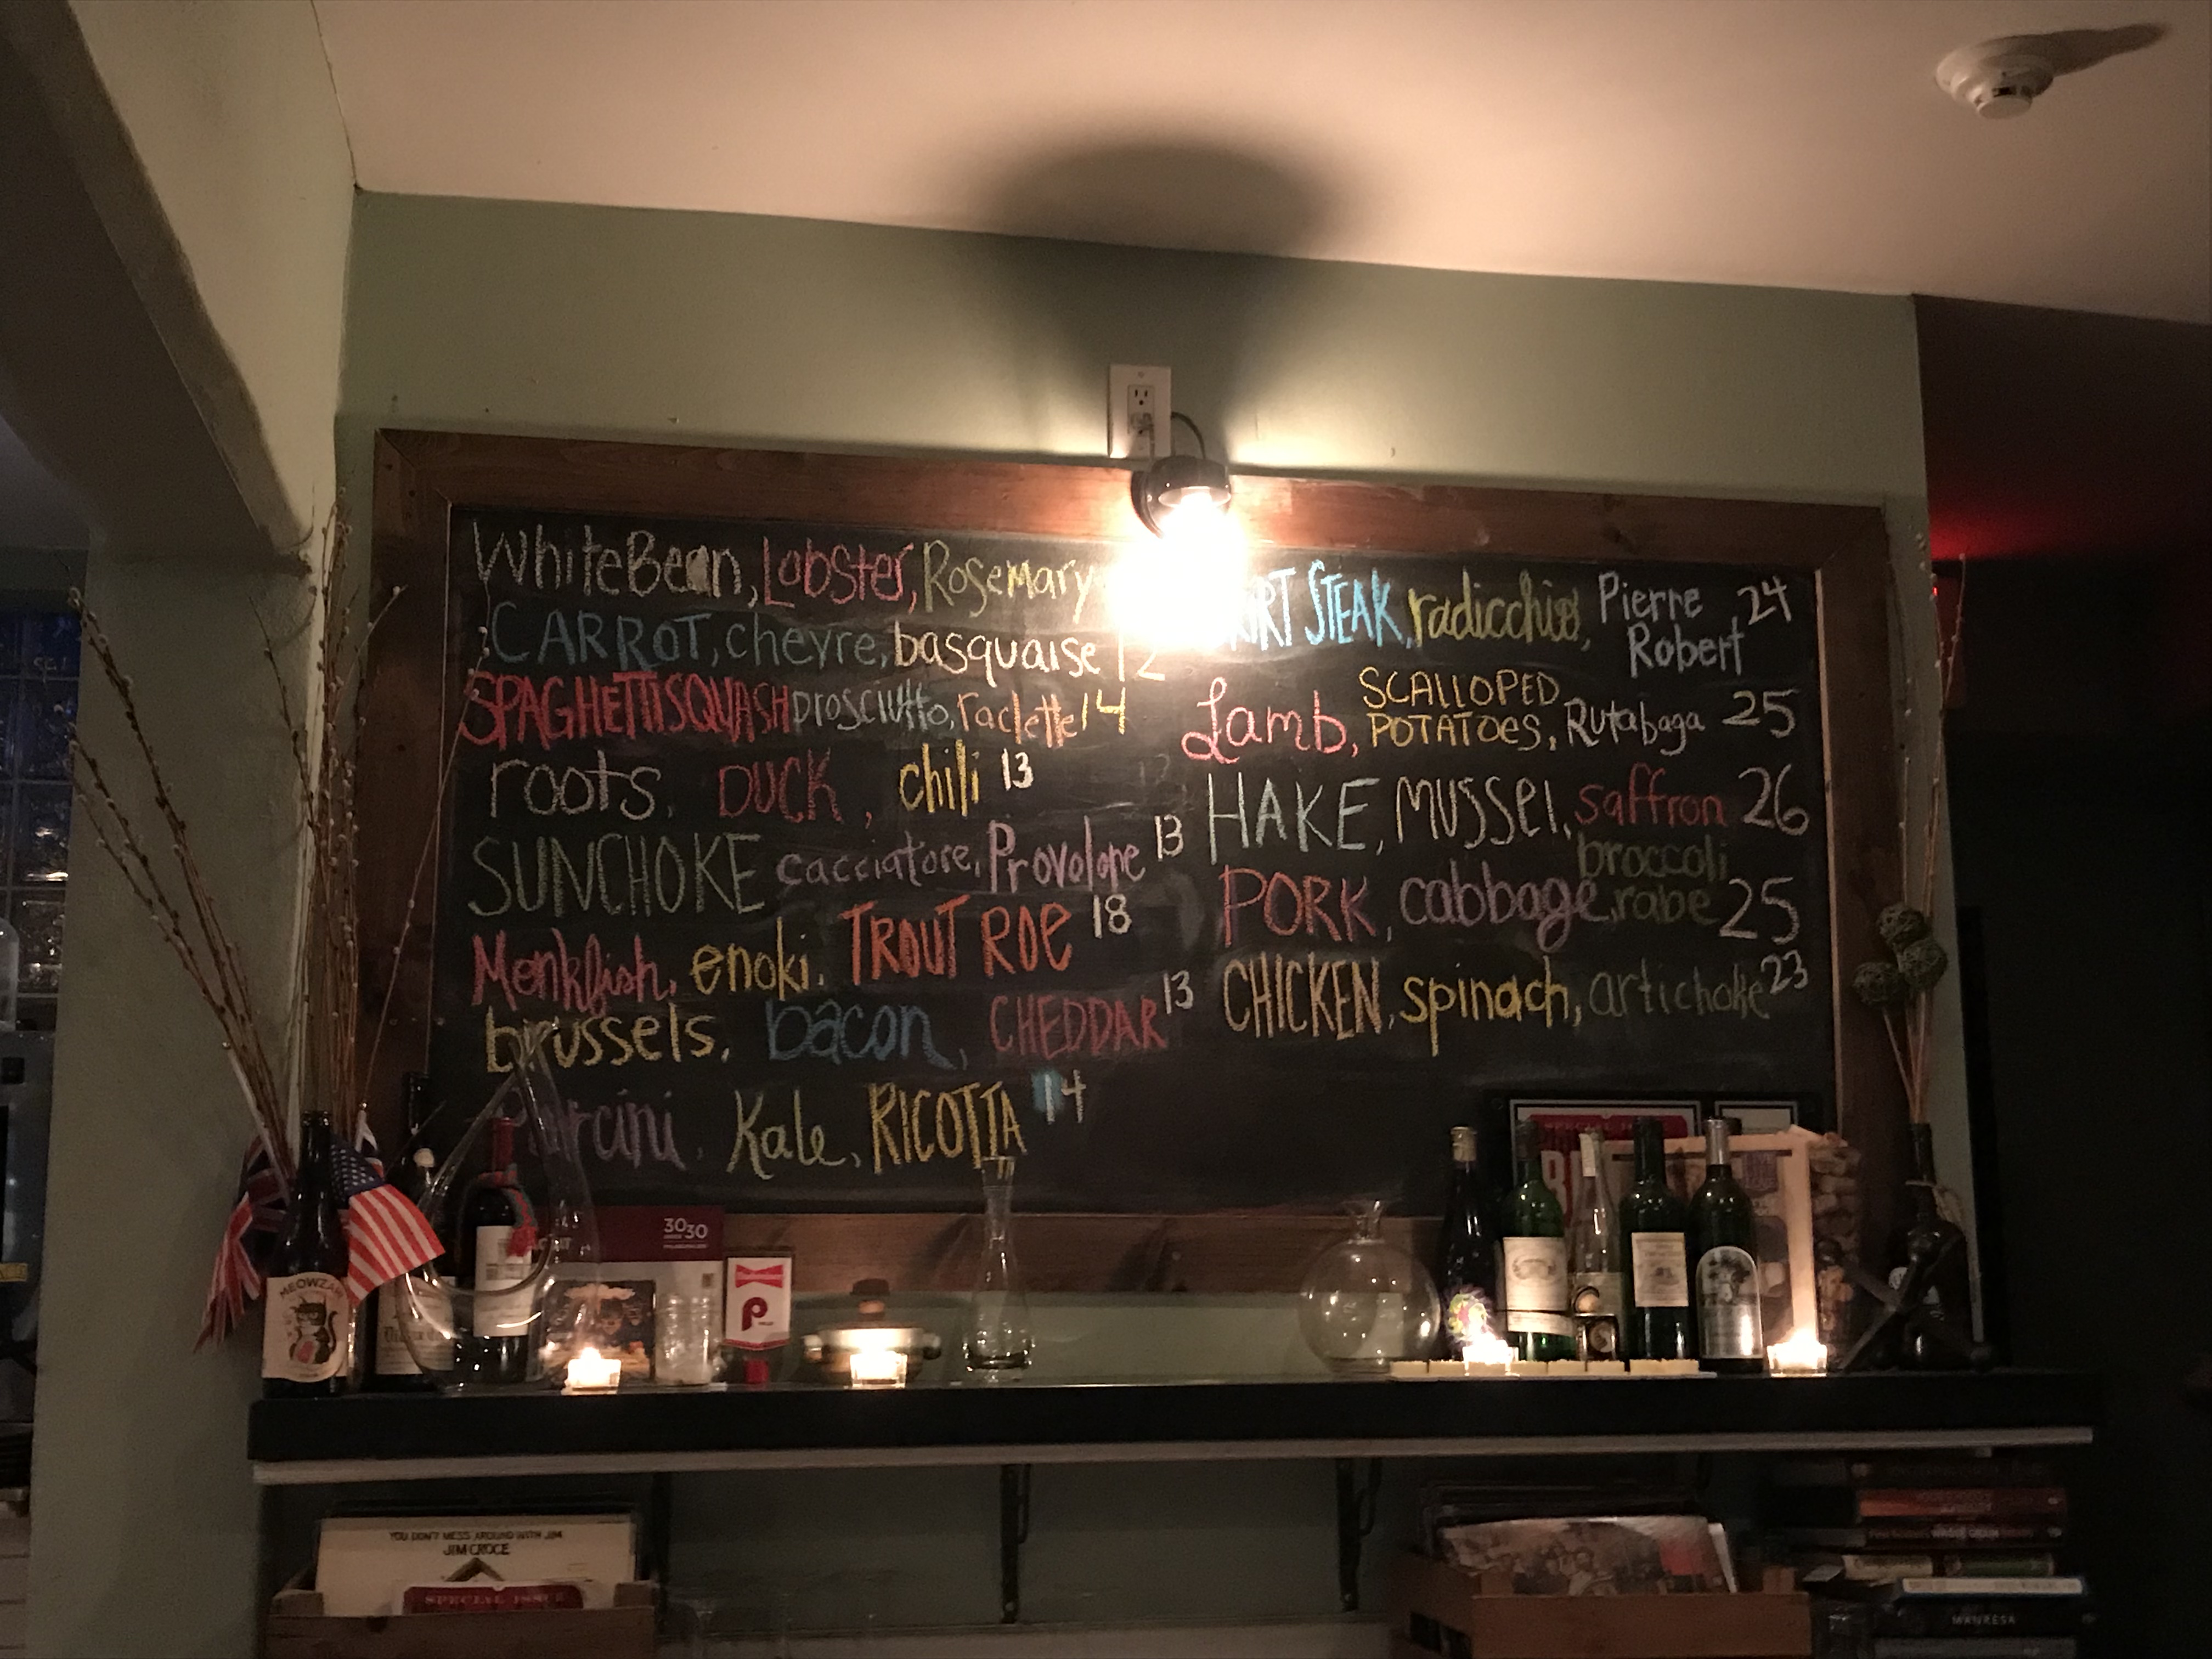 WhiteBean, Lobster, Rosemary
CARROT, chevre, basquaise 12
SPAGHETTI SQUASH prosciutto, raclette 14
roots, DUCK, chili 13
SUNCHOKE cacciatore, Provolone 13
Monkfish, enoki, TROUT ROE 18
brussels, bacon, CHEDDAR 13
Porcini, Kale, RICOTTA 14
STEAK, radicchio, Pierre
Robert 24
Lamb, SCALLOPED
POTATOES, Rutabaga 25
HAKE, Mussel, saffron 26
PORK, cabbage, broccoli
rabe 25
CHICKEN, spinach, artichoke 23
30
UNDER 30
SPECIAL ISSUE
P
YOU DON'T MESS AROUND WITH JIM
JIM CROCE
SPECIAL ISSUE
MANRESA